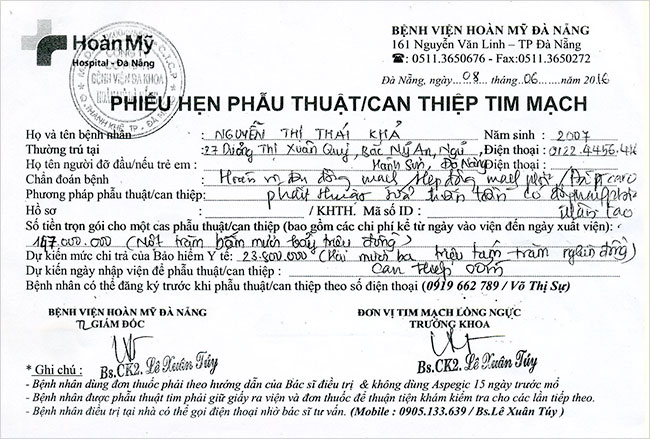 Hoàn Mỹ
Hospital - Đà Nẵng
BỆNH VIỆN HOÀN MỸ ĐÀ NẴNG
161 Nguyễn Văn Linh – TP Đà Nẵng
☎: 0511.3650676 - Fax:0511.3650272
Đà Nẵng, ngày 08 tháng 06 năm 2016
PHIẾU HẸN PHẪU THUẬT/CAN THIỆP TIM MẠCH
Họ và tên bệnh nhân : NGUYỄN THỊ THÁI KHẢ Năm sinh : 2007
Thường trú tại : 27 Dương Thị Xuân Quý, Bắc Mỹ An, Ngũ Điện thoại : 0122.4456.
Họ tên người đỡ đầu/nếu trẻ em : Hành Sơn, Đà Nẵng Điện thoại :
Chẩn đoán bệnh : Hoán vị Đại động mạch Hẹp động mạch phổi /
Phương pháp phẫu thuật/can thiệp: phẫu thuật sửa toàn toàn có động mạch phổi
Hồ sơ : / KHTH. Mã số ID : nhân tạo
Số tiền trọn gói cho một cas phẫu thuật/can thiệp (bao gồm các chi phí kể từ ngày vào viện đến ngày xuất viện):
147.000.000 (Một trăm bốn mươi bảy triệu đồng)
Dự kiến mức chi trả của Bảo hiểm Y tế: 23.800.000 (Hai mươi ba triệu tám trăm nghìn đồng)
Dự kiến ngày nhập viện để phẫu thuật/can thiệp : Can thiệp sớm
Bệnh nhân có thể đăng ký trước khi phẫu thuật/can thiệp theo số điện thoại (0919 662 789 / Võ Thị Sự)
BỆNH VIỆN HOÀN MỸ ĐÀ NẴNG
GIÁM ĐỐC
Bs.CK2. Lê Xuân Túy
ĐƠN VỊ TIM MẠCH LỒNG NGỰC
TRƯỞNG KHOA
Bs.CK2. Lê Xuân Túy
* Ghi chú :
- Bệnh nhân dùng đơn thuốc phải theo hướng dẫn của Bác sĩ điều trị & không dùng Aspegic 15 ngày trước mổ
- Bệnh nhân được phẫu thuật tim phải giữ giấy ra viện và đơn thuốc để thuận tiện khám kiểm tra cho các lần tiếp theo.
- Bệnh nhân điều trị tại nhà có thể gọi điện thoại nhờ bác sĩ tư vấn. (Mobile : 0905.133.639 / Bs.Lê Xuân Túy )